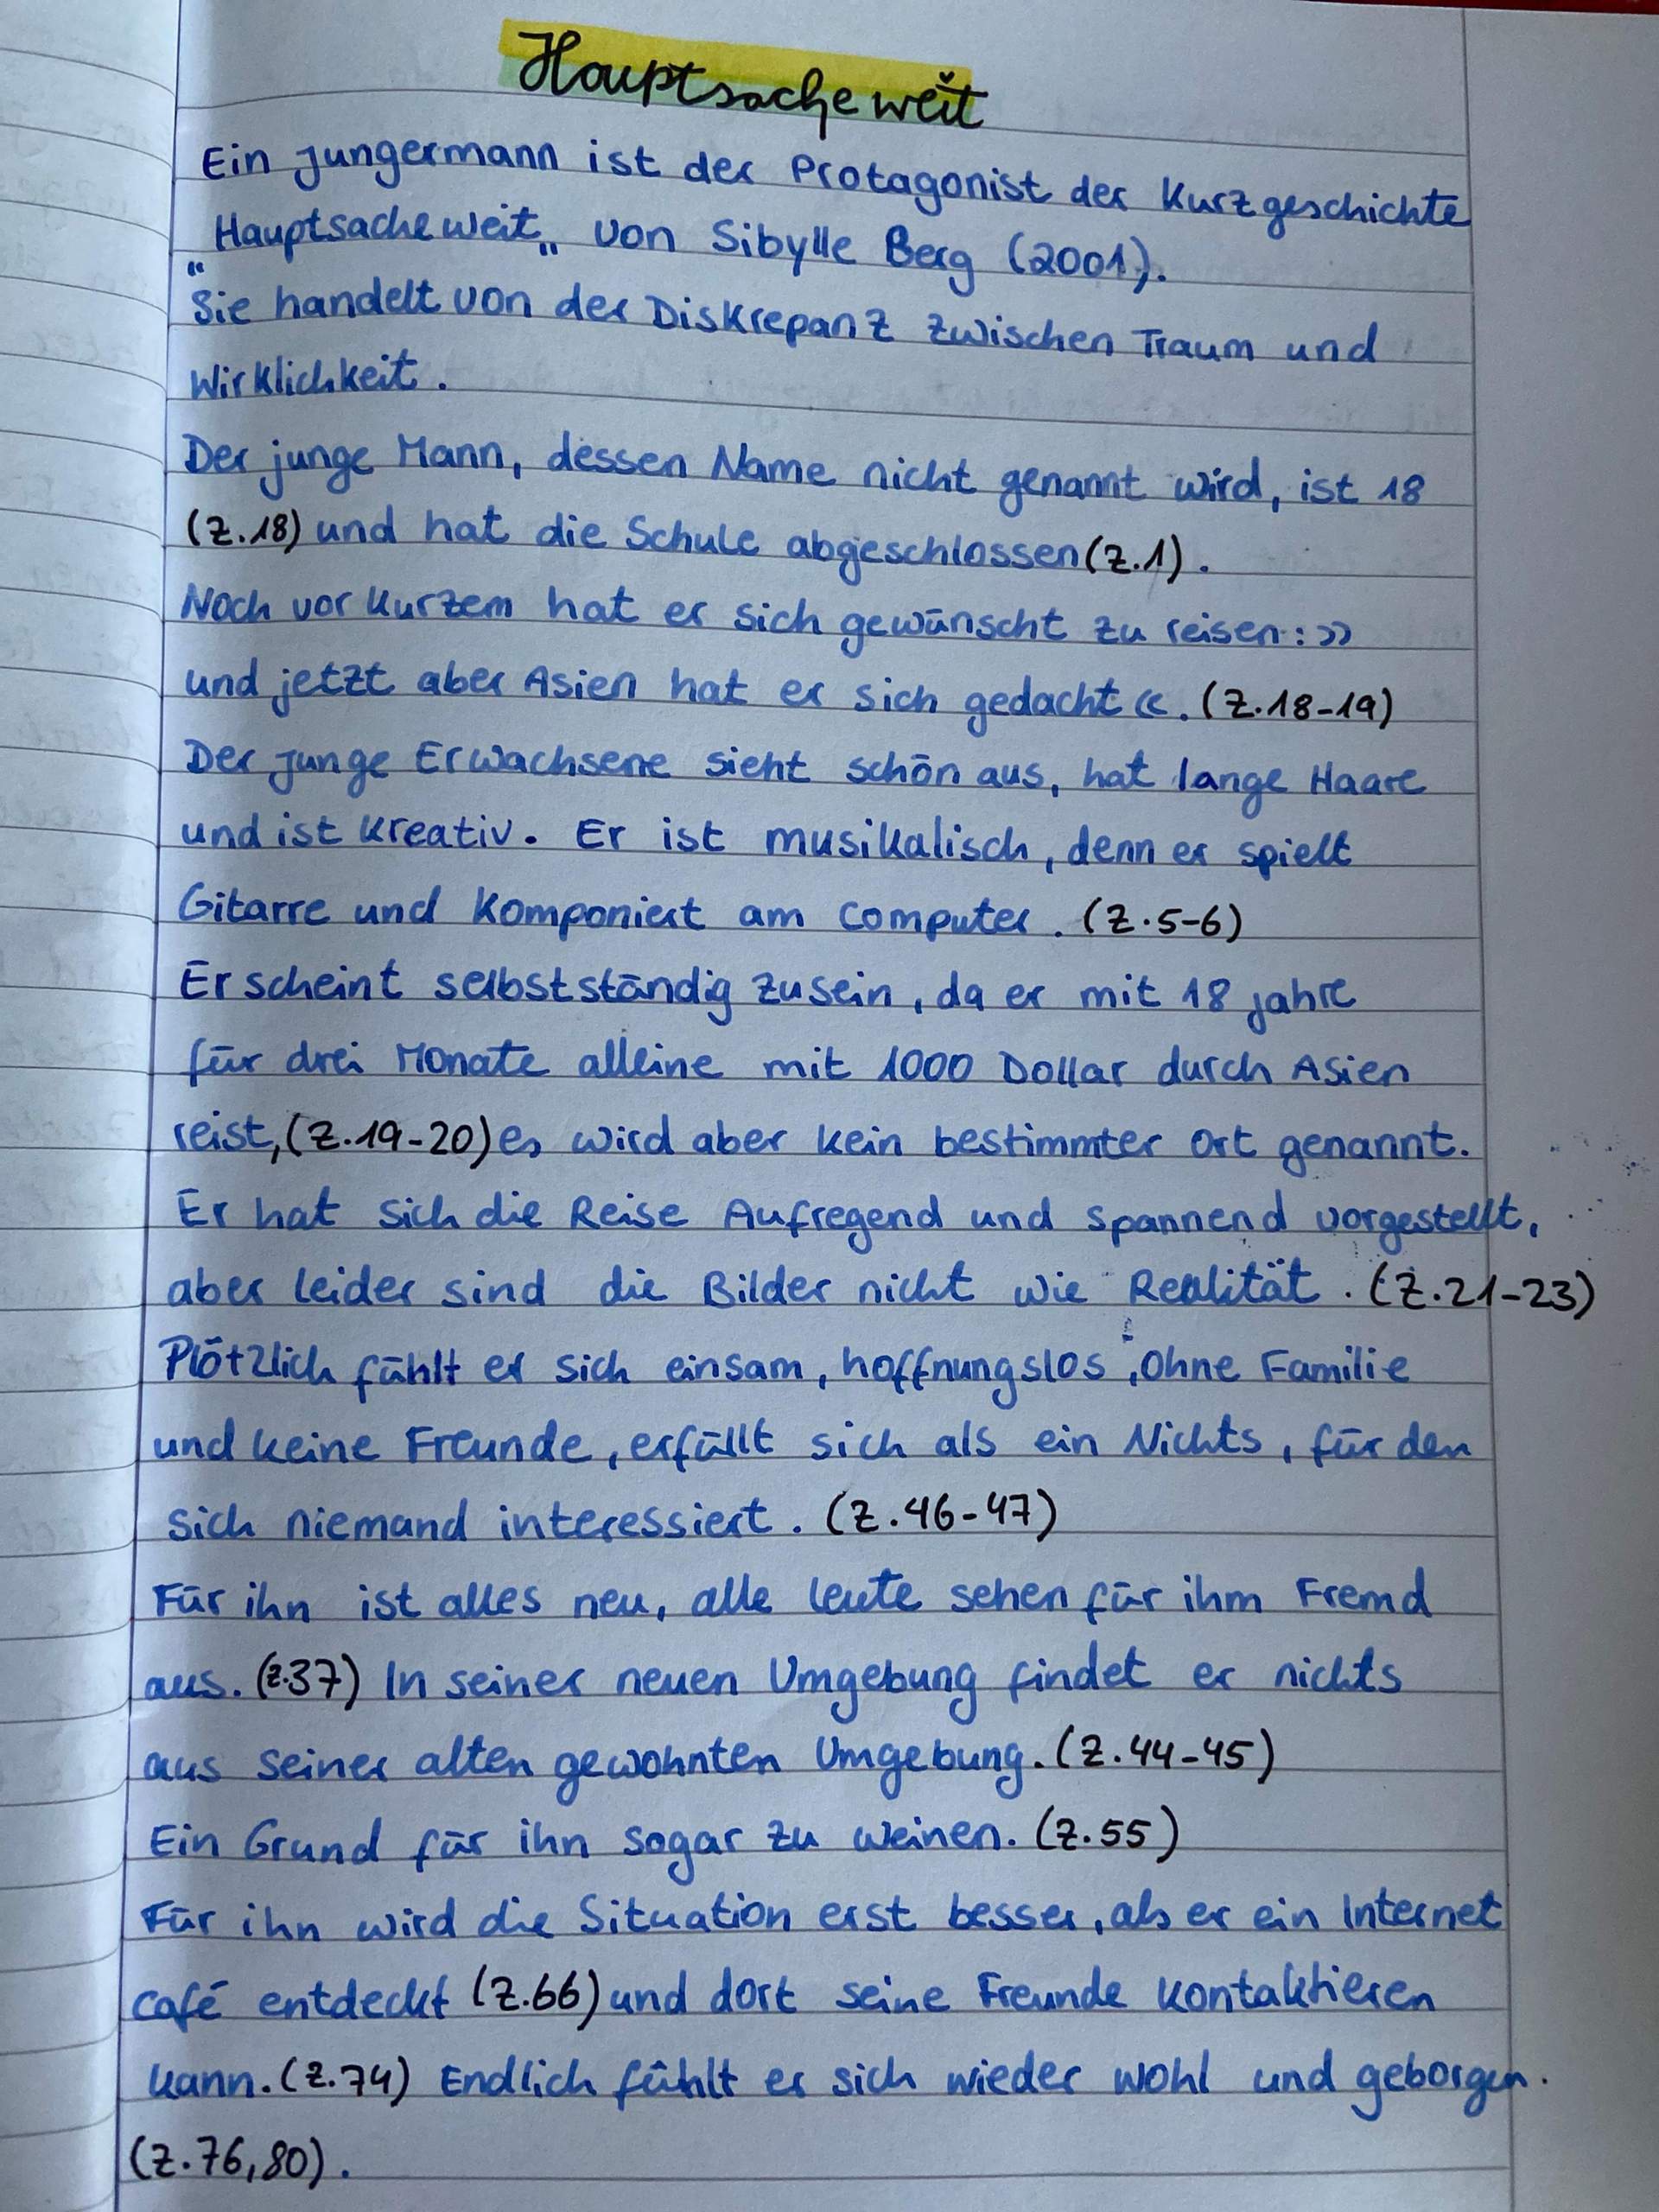 Hauptsache weit
Ein jungermann ist der Protagonist der Kurzgeschichte
"Hauptsache weit" von Sibylle Berg (2001).
Sie handelt von der Diskrepanz zwischen Traum und
Wirklichkeit.
Der junge Mann, dessen Name nicht genannt wird, ist 18
(Z.18) und hat die Schule abgeschlossen (Z.1).
Noch vor kurzem hat er sich gewünscht zu reisen: »
und jetzt aber Asien hat er sich gedacht «. (Z.18-19)
Der junge Erwachsene sieht schön aus, hat lange Haare
und ist kreativ. Er ist musikalisch, denn er spielt
Gitarre und komponiert am Computer. (Z.5-6)
Er scheint selbstständig zusein, da er mit 18 jahre
für drei Monate alleine mit 1000 Dollar durch Asien
reist, (Z.19-20) es wird aber kein bestimmter Ort genannt.
Er hat sich die Reise Aufregend und spannend vorgestellt,
aber leider sind die Bilder nicht wie Realität. (Z.21-23)
Plötzlich fühlt er sich einsam, hoffnungslos, ohne Familie
und keine Freunde, erfüllt sich als ein Nichts, für den
sich niemand interessiert. (Z.46-47)
Für ihn ist alles neu, alle leute sehen für ihm Fremd
aus. (Z.37) In seiner neuen Umgebung findet er nichts
aus seiner alten gewohnten Umgebung. (Z.44-45)
Ein Grund für ihn sogar zu weinen. (Z.55)
Für ihn wird die Situation erst besser, als er ein Internet
café entdeckt (Z.66) und dort seine Freunde kontaktieren
kann. (Z.74) Endlich fühlt er sich wieder wohl und geborgen.
(Z.76,80).